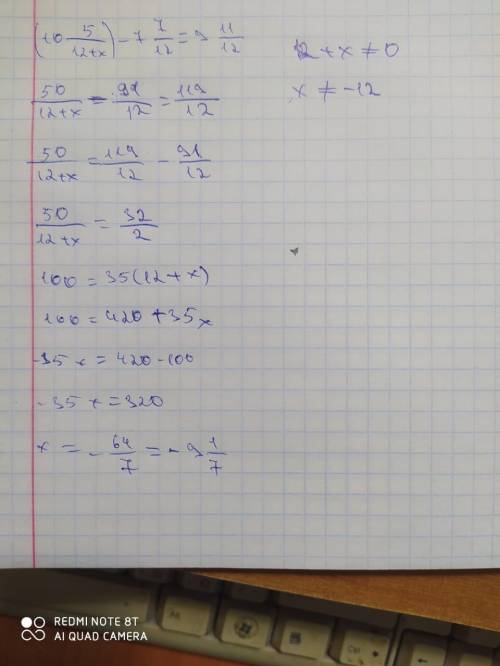 (10 5/(12+x)) - 7 7/12 = 9 11/12
12 + x ≠ 0
50/(12+x) - 91/12 = 119/12
x ≠ -12
50/(12+x) = 119/12 - 91/12
50/(12+x) = 32/2
100 = 35(12+x)
100 = 420 + 35x
-35x = 420 - 100
-35x = 320
x = -64/7 = -9 1/7
REDMI NOTE 8T
AI QUAD CAMERA